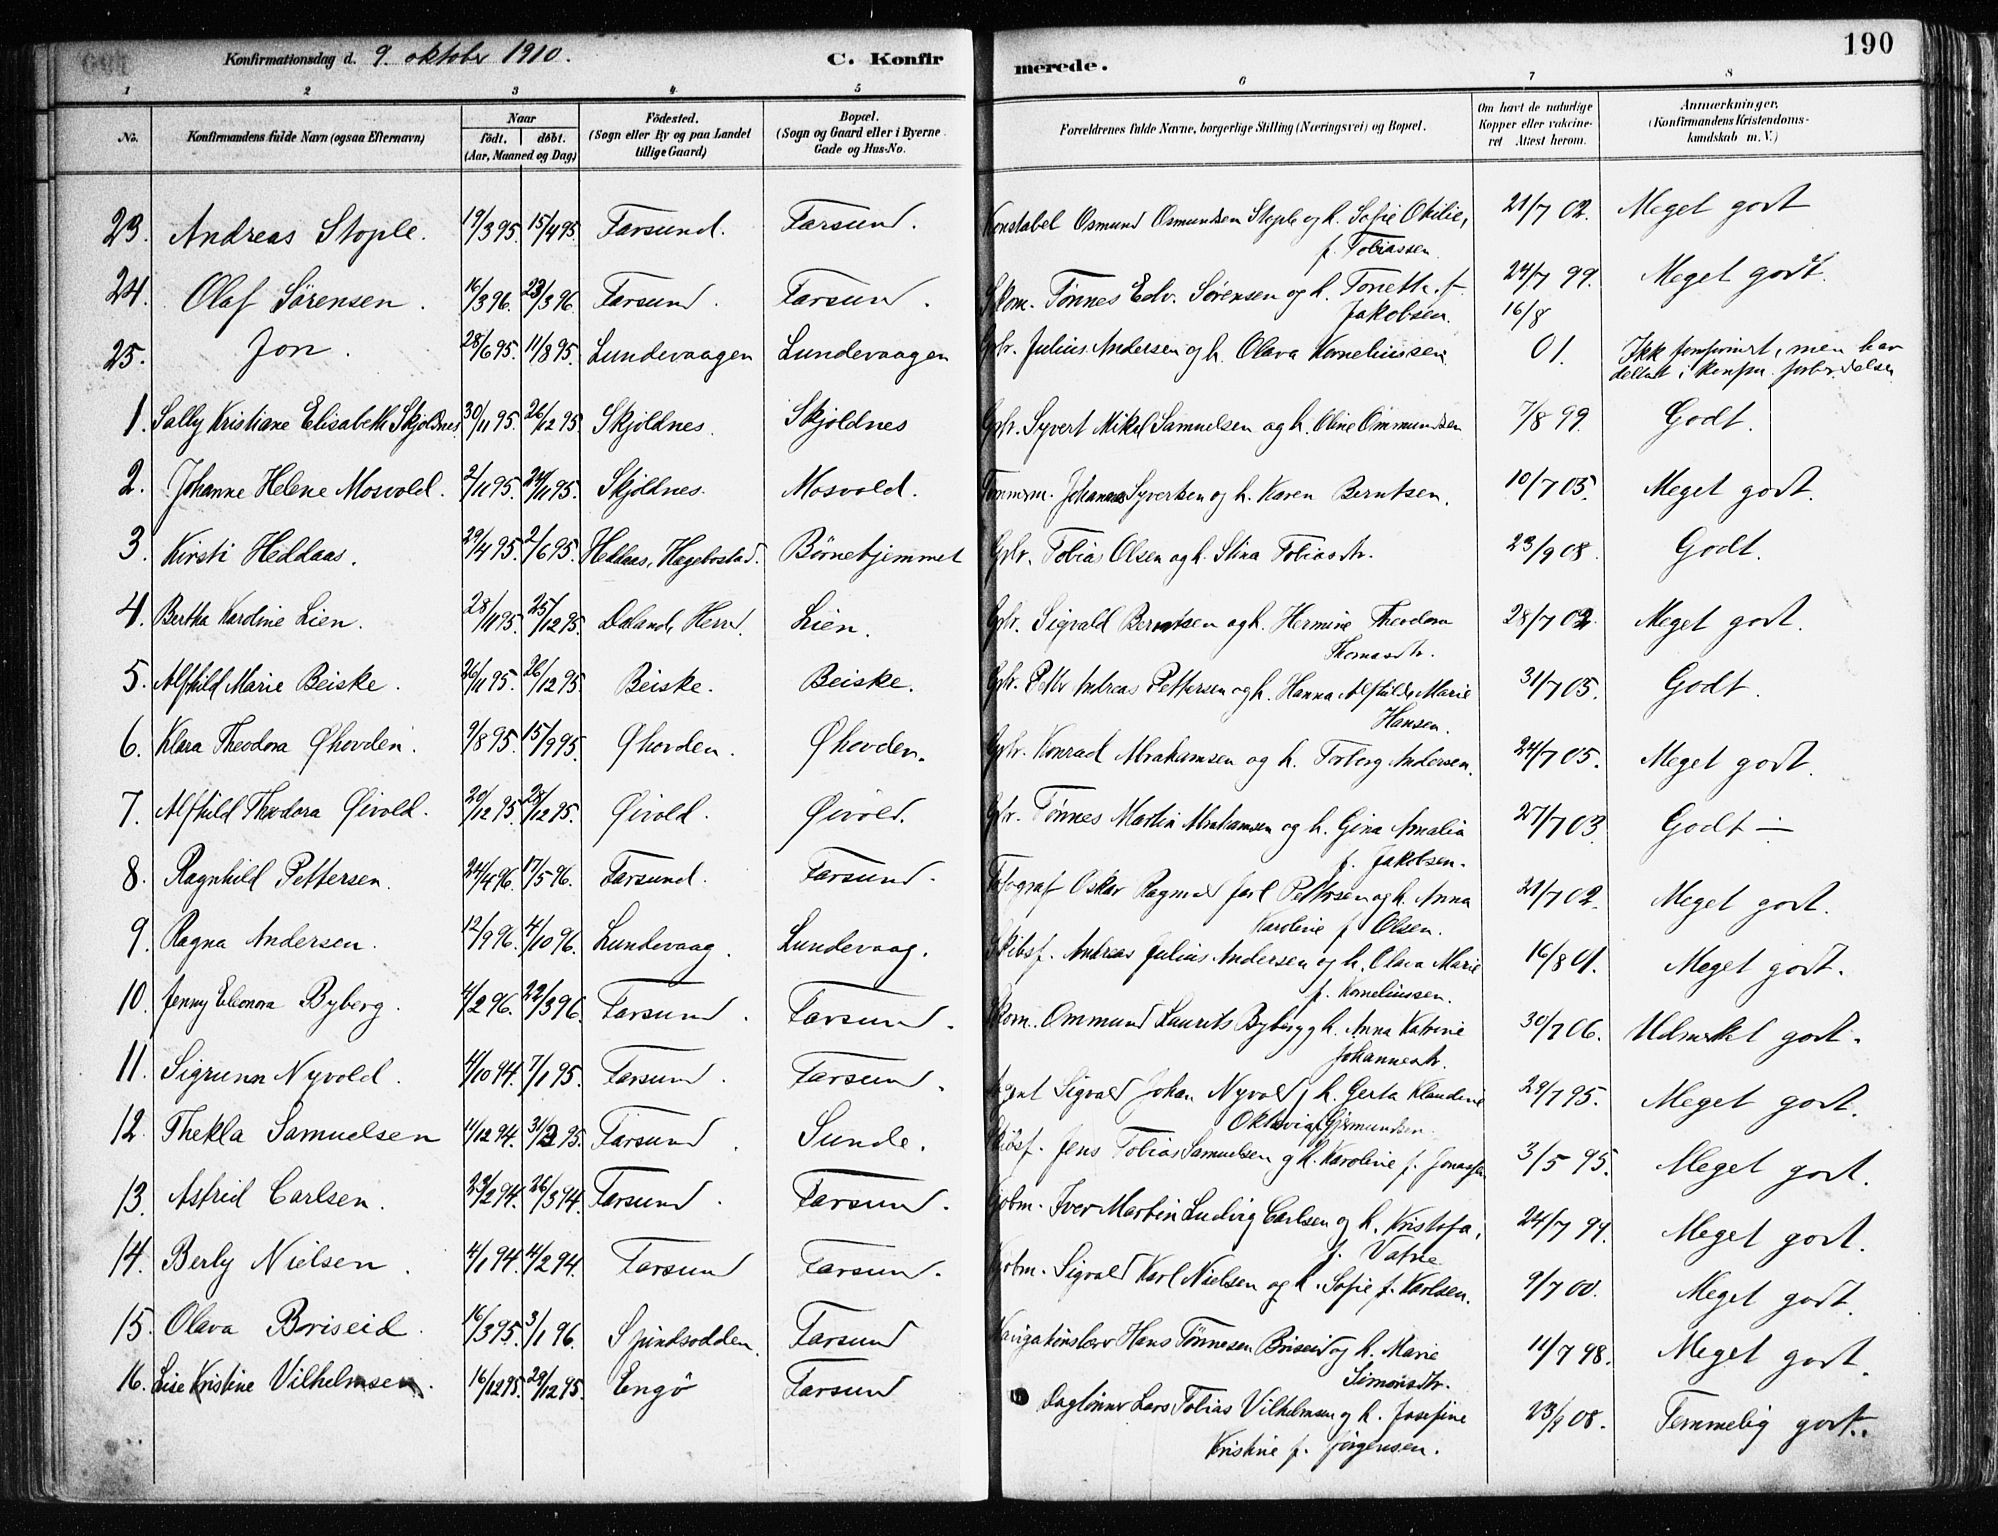 Konfirmationsdag d. 9. oktober 1910. C. Konfirmerede. 190
1 2 3 4 5 6 7 8
No. Konfirmandens fulde Navn (ogsaa Efternavn) Naar født. døbt. (Aar, Maaned og Dag) Fødested. (Sogn eller By og paa Landet tillige Gaard) Bopæl. (Sogn og Gaard eller i Byerne Gade og Hus-No. Forældrenes fulde Navne, borgerlige Stilling (Næringsvei) og Bopæl. Om havt de naturlige Kopper eller vakcineret Attest herom. Anmærkninger. (Konfirmandens Kristendomskundskab m. V.)
23. Andreas Stople. 19/3 95. 15/4 95. Farsund. Farsund. Konstabel Osmund Osmundsen Stople og h. Sofie Otilie, 21/7 02. Meget godt
f. Tobiassen.
24. Olaf Sørensen. 16/3 96. 23/3 96. Farsund. Farsund. Skom. Tønnes Edv. Sørensen og h. Tonette f. 24/7 99. Meget godt.
Jakobsen.
25. Jon. 28/6 95. 11/8 95. Lundevaagen Lundevaagen Gbr. Julius Andersen og h. Olava Korneliussen 16/8 01. Ikke konfirmert, men har
deltatt i konfm. forberedelsen
1. Sally Kristiane Elisabeth Skjoldnes. 30/11 95. 26/12 95. Skjoldnes. Skjoldnes Gbr. Syvert Mikal Samuelsen og h. Oline Ommundsen 7/8 99. Godt.
2. Johanne Helene Mosvold. 2/11 95. 24/11 95. Skjoldnes. Mosvold. Tømmerm. Johannes Syvertsen og h. Karen Berntsen. 10/7 05. Meget godt.
3. Kirsti Heddaas. 29/4 95. 2/6 95. Heddaas, Hægebostad. Børnehjemmet Gbr. Tobias Olsen og h. Stina Tobiasdtr. 23/9 08. Godt.
4. Bertha Kardine Lien. 28/11 95. 25/12 95. Dalands Herred. Lien. Gbr. Sigvald Berntsen og h. Hermine Theodora 28/7 02. Meget godt.
Thomasdtr.
5. Alfhild Marie Beiske. 26/11 95. 26/12 95. Beiske. Beiske. Gbr. Peter Andreas Pettersen og h. Hanna Alfhilda Marie 31/7 05. Godt.
Hansen.
6. Klara Theodora Øhovden. 9/8 95. 15/9 95. Øhovden. Øhovden. Gbr. Konrad Abrahamsen og h. Torborg Andersen. 24/7 05. Meget godt.
7. Alfhild Theodora Øivold. 20/12 95. 28/12 95. Øivold. Øivold. Gbr. Tønnes Martin Abrahamsen og h. Gina Amalia 27/7 03. Godt —
f. Jakobsen.
8. Ragnhild Pettersen. 24/4 96. 17/5 96. Farsund. Farsund. Fotograf Oskar Ragnvald Jarl Pettersen og h. Anna 21/7 02. Meget godt.
Karoline f. Olsen.
9. Ragna Andersen. 12/9 96. 4/10 96. Lundevaag. Lundevaag. Skibsf. Andreas Julius Andersen og h. Olava Marie 16/8 01. Meget godt.
f. Korneliussen.
10. Jenny Eleonora Byberg. 4/2 96. 22/3 96. Farsund. Farsund. Skom. Ommund Laurits Byberg og h. Anna Katrine 30/7 06. Udmerket godt.
Johannesdtr.
11. Sigrunn Nyvold. 4/10 94. 7/1 95. Farsund. Farsund. Agent Sigvald Johan Nyvold, h. Gerta Klaudine 29/7 95. Meget godt.
Oktavia Gjermundsen.
12. Thekla Samuelsen 11/12 94. 31/3 95. Farsund. Sunde. Skibsf. Jens Tobias Samuelsen og h. Karoline f. Jonassen 3/5 95. Meget godt.
13. Astrid Carlsen. 23/2 94. 26/3 94. Farsund. Farsund. Kjøbm. Iver Martin Ludvig Carlsen og h. Kristofa, 24/7 94. Meget godt.
f. Vatne
14. Berly Nielsen. 4/1 94. 4/2 94. Farsund Farsund. Kjøbm. Sigvald Karl Nielsen og h. Sofie f. Karlsen. 9/7 00. Meget godt.
15. Olava Boriseid. 16/3 95. 3/1 96. Spindsodden. Farsund Navigationslærer Hans Tønnesen Briseid og h. Marie 11/7 98. Meget godt.
Simonsdtr.
16. Lise Kristine Vilhelmsen. 16/12 95. 29/12 95. Engø Farsund Dagløner Lars Tobias Vilhelmsen og h. Josefine 23/9 08. Temmelig godt.
Kristine f. Jørgensen.